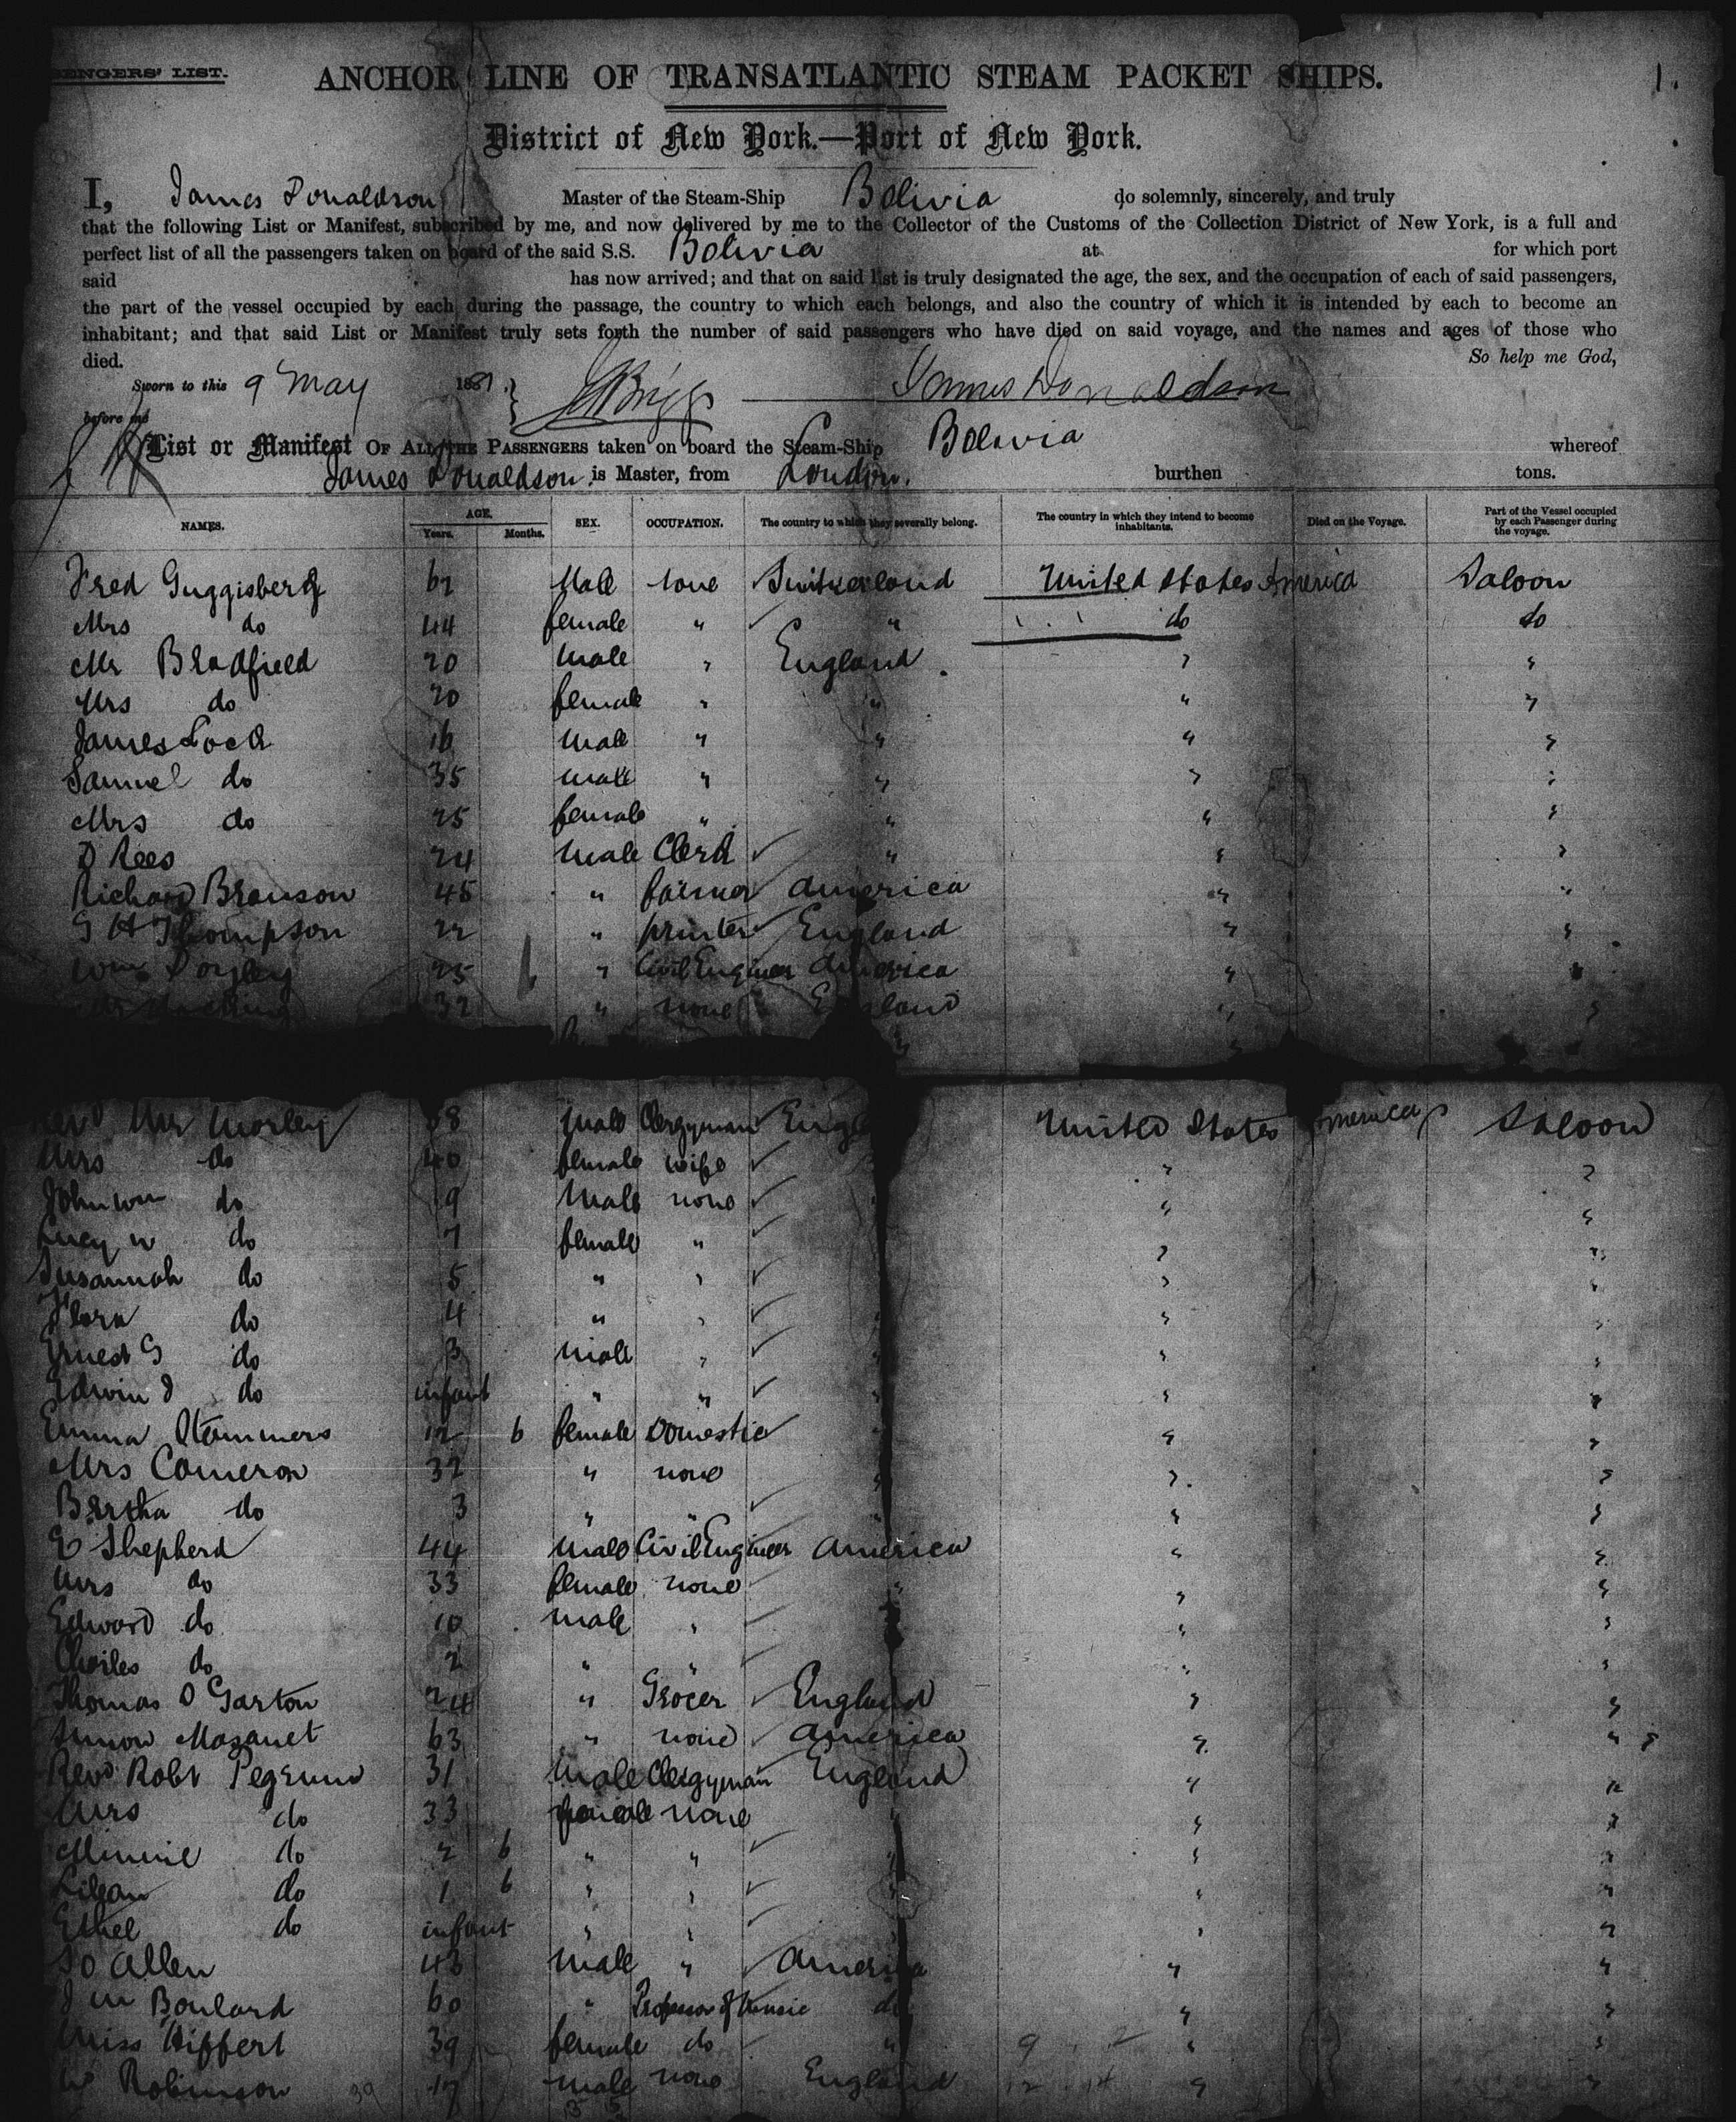 SENGERS' LIST.
ANCHOR LINE OF TRANSATLANTIC STEAM PACKET SHIPS.
1.
District of New York.—Port of New York.
I, James Donaldson Master of the Steam-Ship Bolivia do solemnly, sincerely, and truly
that the following List or Manifest, subscribed by me, and now delivered by me to the Collector of the Customs of the Collection District of New York, is a full and
perfect list of all the passengers taken on board of the said S.S. Bolivia at for which port
said has now arrived; and that on said list is truly designated the age, the sex, and the occupation of each of said passengers,
the part of the vessel occupied by each during the passage, the country to which each belongs, and also the country of which it is intended by each to become an
inhabitant; and that said List or Manifest truly sets forth the number of said passengers who have died on said voyage, and the names and ages of those who
died. So help me God,
Sworn to this 9 May 1881 James Donaldson
before me
List or Manifest OF ALL THE PASSENGERS taken on board the Steam-Ship Bolivia whereof
James Donaldson is Master, from London. burthen tons.
NAMES. AGE. Years. Months. SEX. OCCUPATION. The country to which they severally belong. The country in which they intend to become inhabitants. Died on the Voyage. Part of the Vessel occupied by each Passenger during the voyage.
Fred Guggisberg Male Switzerland United States America Saloon
Mrs do 44 female " " do do
Mr Bradfield 20 Male " England " "
Mrs do 20 female " " " "
James Lock 16 Male " " " "
Samuel do 35 Male " " " "
Mrs do 25 female " " " "
D Rees 24 Male Clerk " " "
Richard Branson 45 " farmer America " "
G H Thompson 22 " printer England " "
Wm 25 " Civil Engineer America " "
32 " none England " "
Mr Morley 38 Male Clergyman United States America Saloon
Mrs do 40 female wife " "
John Wm do 9 Male none " "
Lucy W do 7 female " " "
Susannah do 5 " " " "
Flora do 4 " " " "
Ernest G do 3 Male " " "
Edwin J do infant " " " "
Emma Stammers 12 6 female Domestic " "
Mrs Cameron 32 " none " "
Bertha do 3 " " " "
E Shepherd 44 Male Civil Engineer America " "
Mrs do 33 female none " " "
Edward do 10 male " " "
Charles do 2 " " " "
Thomas D Garton 24 " Grocer England " "
Simon 63 " none America " "
Revd Robt Pegrum 31 Male Clergyman England " "
Mrs do 33 female none " " "
Minnie do 2 6 " " " " "
Lilean do 1 6 " " " " "
Ethel do infant " " " "
Allen 43 Male " America " "
Boulard 60 " Professor of Music do " "
Miss Hiffert 39 female do " " "
Robinson 17 male none England " "